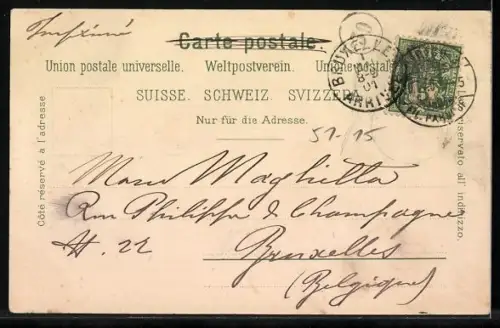 Imprimé
Carte postale.
Union postale universelle. Weltpostverein. Unione postale
SUISSE. SCHWEIZ. SVIZZERA
Nur für die Adresse.
Côté réservé à l'adresse
riservato all' indirizzo.
BRUXELLES
ARRIVÉE
51-15
Maghetta
Rue Philippe de Champagne
N. 22
Bruxelles
(Belgique)